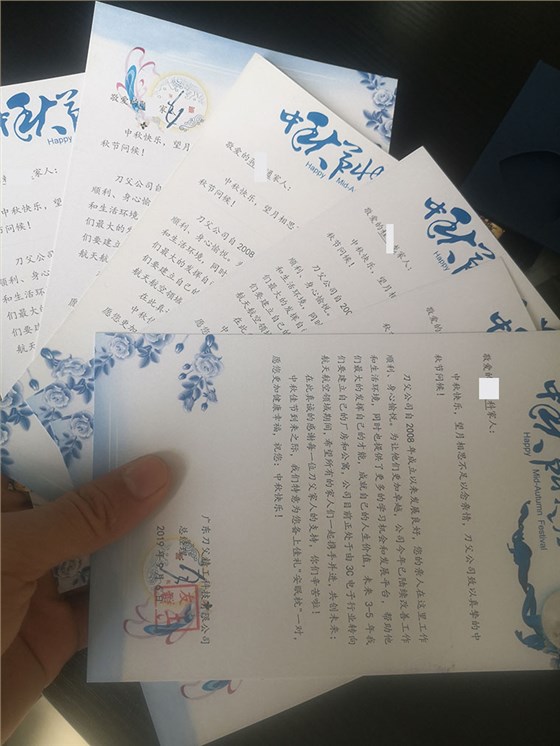 中秋节
Happy
家人：
中秋快乐，望月
秋节问候！
敬爱
家
中秋快乐，望
秋节问候！
刀父公
顺利、身心
和生活环
们最大的
们要建
航天
中秋节
Happy Mid-A
敬爱的
家人：
中秋快乐，望月相思
秋节问候！
刀父公司自 2008
顺利、身心愉悦。
和生活环境，同时
们最大的发挥自
们要建立自己的
航天航空领域
在此真
中秋
愿您更加
中秋节
Happy
敬爱的
家人：
中秋快乐，望月相
秋节问候！
刀父公司自 200
顺利、身心愉
和生活环境
们最大的
敬爱的
中秋节
Happy Mid-Autumn Festival
敬爱的
家人：
中秋快乐，望月相思不足以念亲情，刀父公司致以真挚的中
秋节问候！
刀父公司自 2008 年成立以来发展良好，您的亲人在这里工作
顺利、身心愉悦。为让他们更加卓越，公司今年已陆续改善工作
和生活环境，同时也提供了更多的学习机会和发展平台，帮助他
们最大的发挥自己的才能，成就自己的人生价值，未来 3-5 年我
们要建立自己的厂房和公寓，公司目前正处于由 3C 电子行业转向
航天航空领域期间，希望所有的家人们一起携手并进，共创未来；
在此真诚的感谢每一位刀父家人的支持，你们辛苦啦！
中秋佳节到来之际，我们特意为您备上佳礼“安眠枕”一对，
愿您更加健康幸福，祝您：中秋快乐！
广东刀父精工科技有限公司
总经
2019年9月